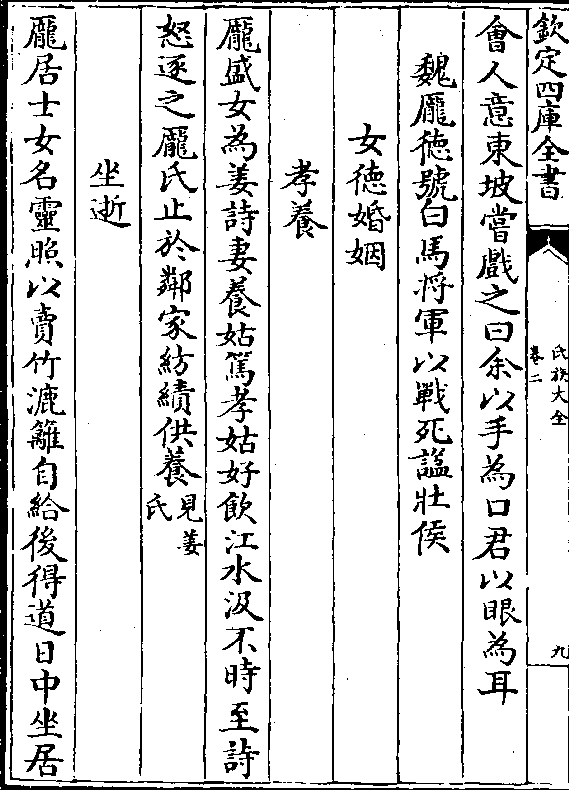 欽定四庫全書
氏族大全
卷二
九
會人意東坡嘗戲之曰余以手為口君以眼為耳
魏龎徳號白馬将軍以戰死謚壮侯
女徳婚姻
孝養
龎盛女為姜詩妻養姑篤孝姑好飲江水汲不時至詩
怒逐之龎氏止於鄰家紡績供養見姜氏
坐逝
龎居士女名靈照以賣竹漉籬自給後得道日中坐居